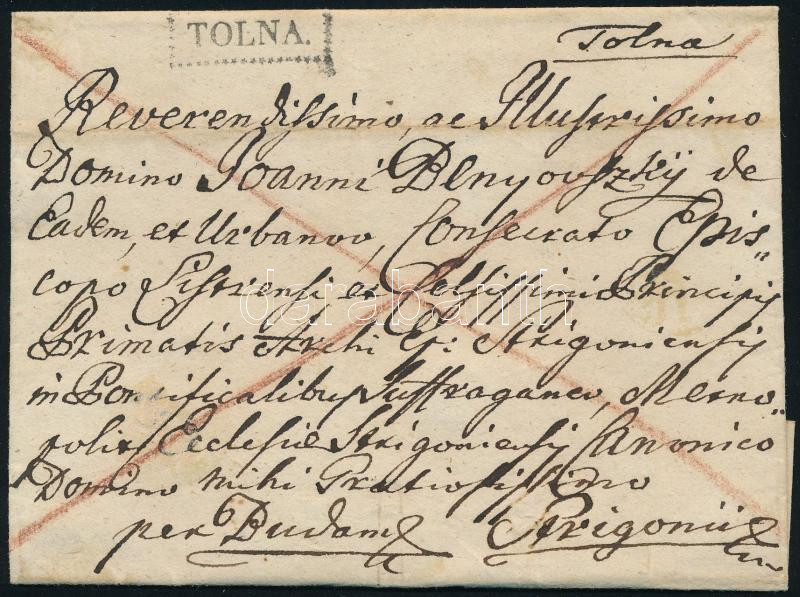 TOLNA.
Tolna
Reverendissimo, ac Illustrissimo
Domino Joanni Benyovszkÿ de
Eadem, et Urbanov, Consecrato Epis„
copo Sistrensi et Celsissimi Principis
Primatis Archi Ep: Strigoniensis
in Pontificalibus Suffraganeo, Metro„
polit. Ecclesiæ Strigoniensis Canonico
Domino mihi Gratiosissimo
per Budam
Strigonii
darabanth